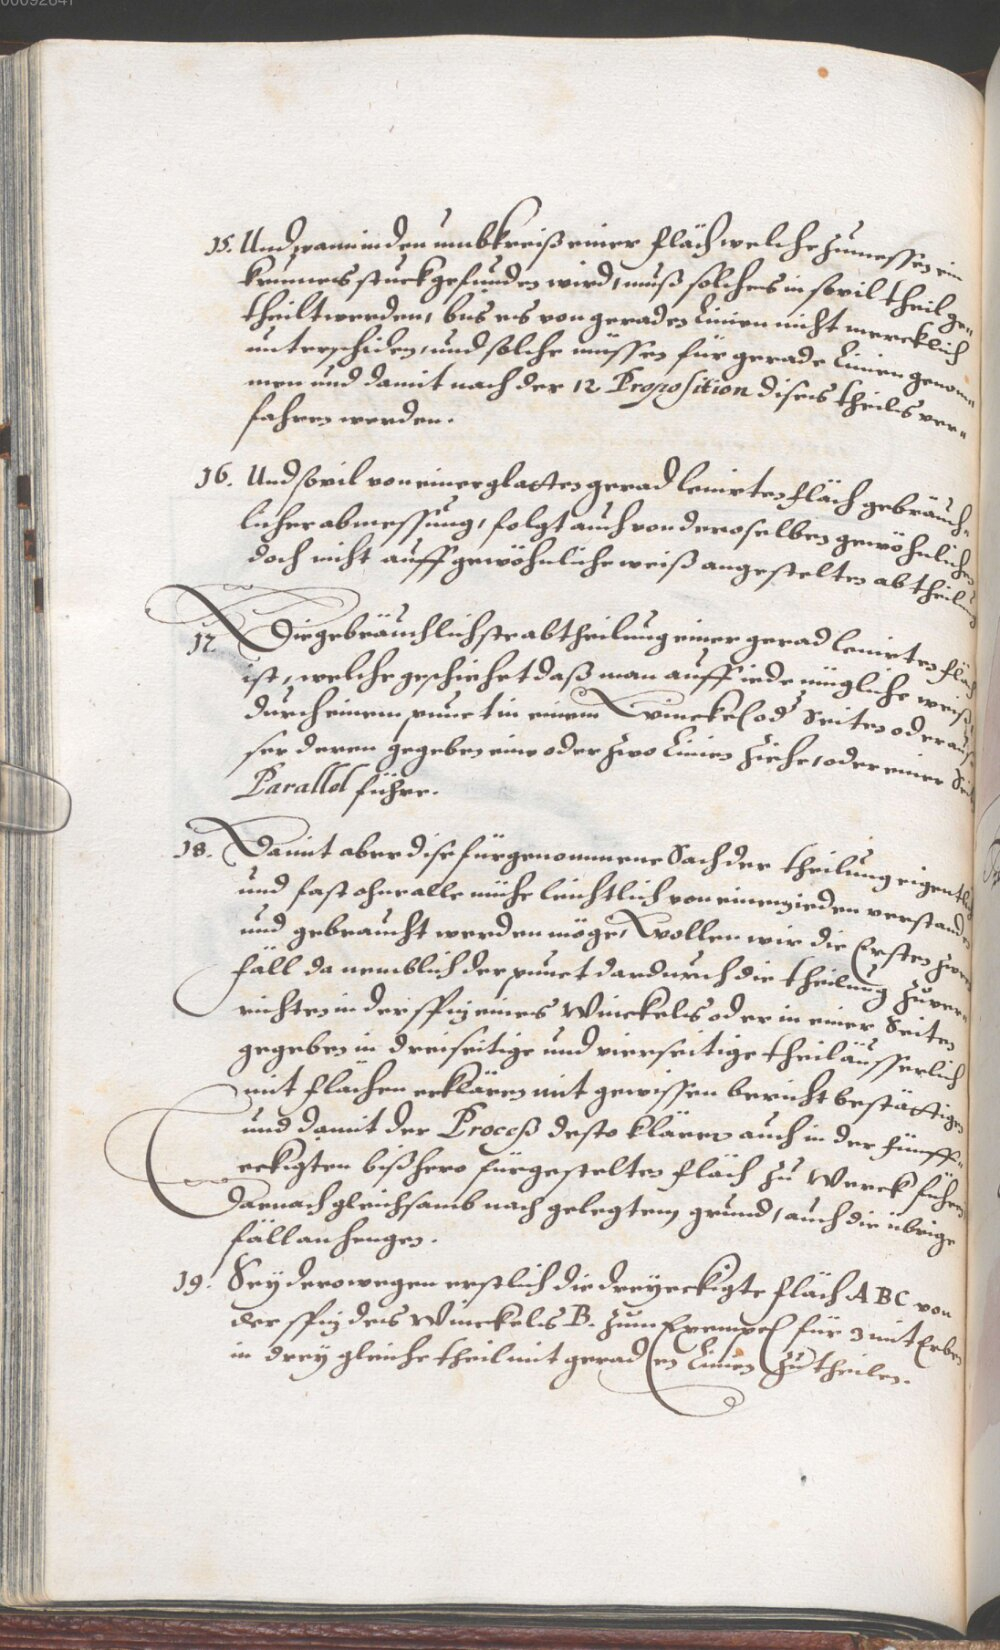 00092841
15. Und wann in den umbkreiß einer fläch welche zumessen ein
krumes stuck gefunden wird, muß solches in sovil theil ge=
theilt werden, bis es von geraden Linien nicht mercklich
unterschiden, und solche müssen für gerade Linien genom=
men und damit nach der 12 Proposition dises theils ver=
fahren werden.
16. Und sovil von einer glatten gerad linirten fläch gebräuch=
licher abmessung, folgt auch von deroselben gewöhnlichen
doch nicht auff gewöhnliche weiß angestelten abtheilung
17. Die gebräuchlichste abtheilung einer gerad linirten fläch
ist, welche geschiehet daß man auff iede mügliche weiß
durch einem punct in einem Winckel od Seiten oder aus=
ser deren gegeben eine oder zwo Linien ziehe, oder einer Seit
Parallel führe.
18. Damit aber dise fürgenommene Sach der theilung eigentlich
und fast ohne alle mühe leichtlich von einem ieden verstanden
und gebraucht werden möge, Wollen wir die Ersten zween
fäll da nemblich der punct dardurch die theilung zuver=
richten in der spitz eines Winckels oder in einer Seiten
gegeben in dreiseitige und vierseitige theil äusserlich
mit flächen erklären mit gewissen bericht bestättigen
und damit der Proceß desto klärer auch in der fünff=
eckigten bißhero fürgestelten fläch zu Werck führen
Darnach gleichsamb nach gelegtem grund, auch die übrige
fäll anhengen.
19. Sey derowegen erstlich die dreyeckigte fläch ABC von
der spitz des Winckels B. zum Exempel für 3 mit Erben
in drey gleiche theil mit geraden Linien zu theilen.